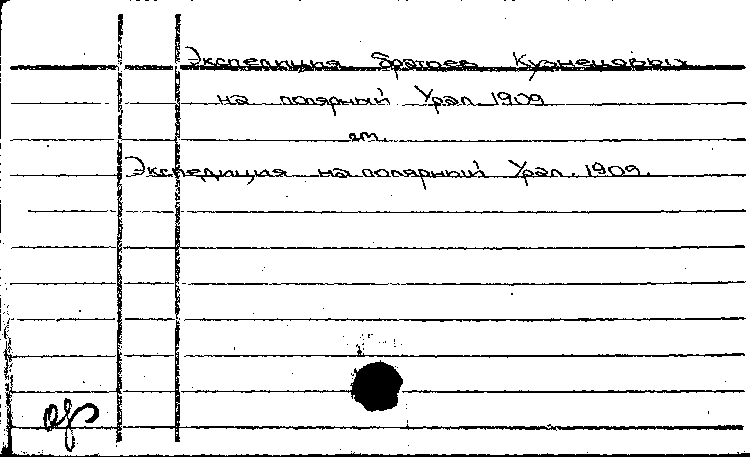 Экспедиция братьев Кузнецовых
на полярный Урал 1909
см.
Экспедиция на полярный Урал. 1909.